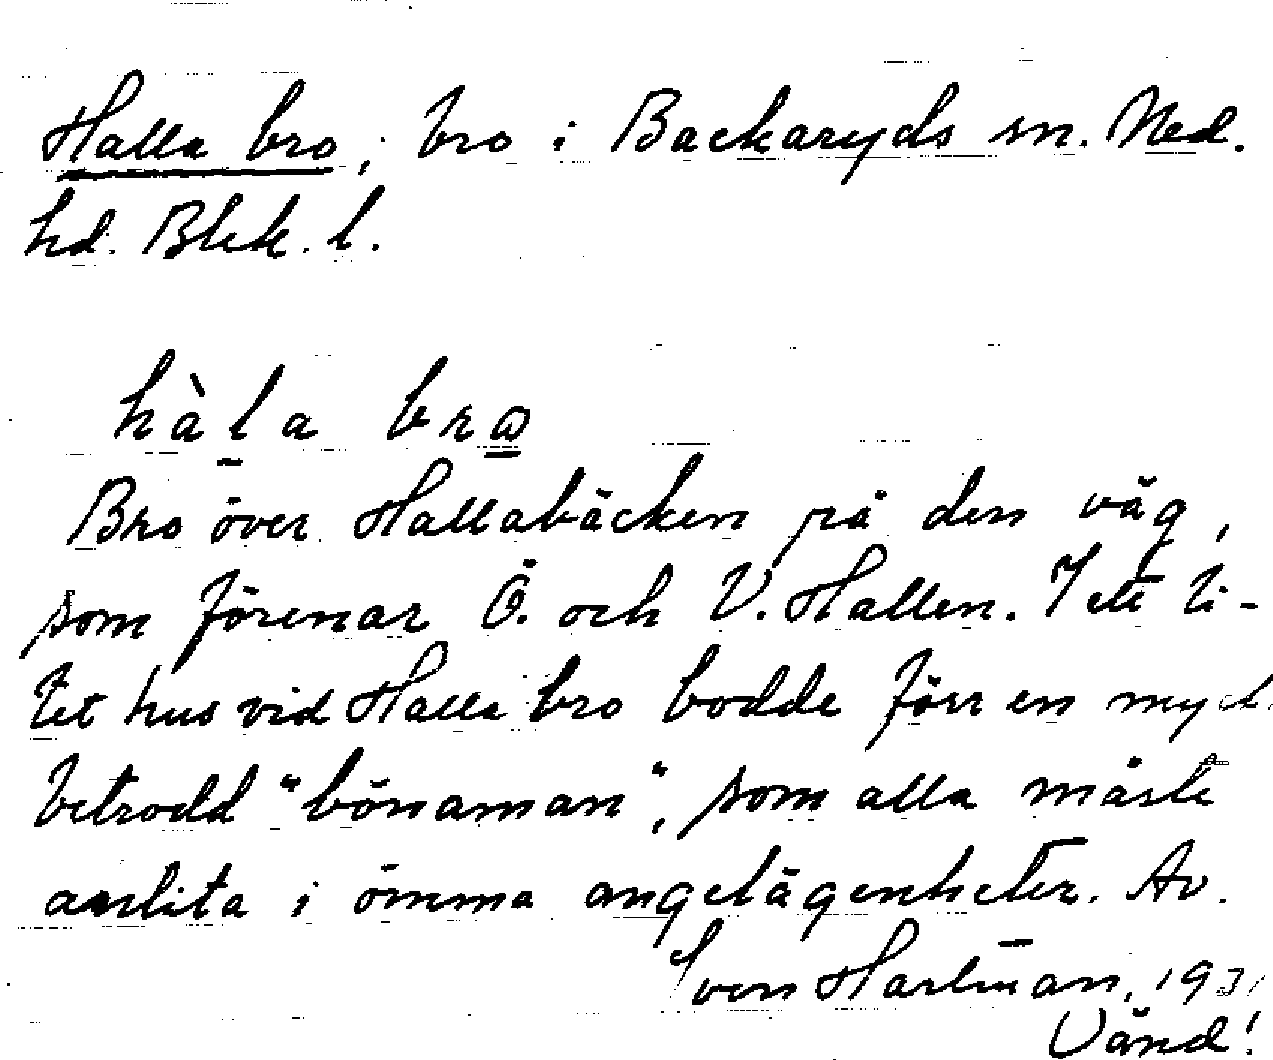 Halla bro, bro i Backaryds sn. Med.
hd. Blek. l.
hàl̲a brɷ̲
Bro över Hallabäcken på den väg,
som förenar Ö. och V. Hallen. I ett li-
tet hus vid Halla bro bodde förr en myck.
betrodd "bönaman", som alla måste
anlita i ömma angelägenheter. Av.
Sven Hartman, 1931
Vänd!